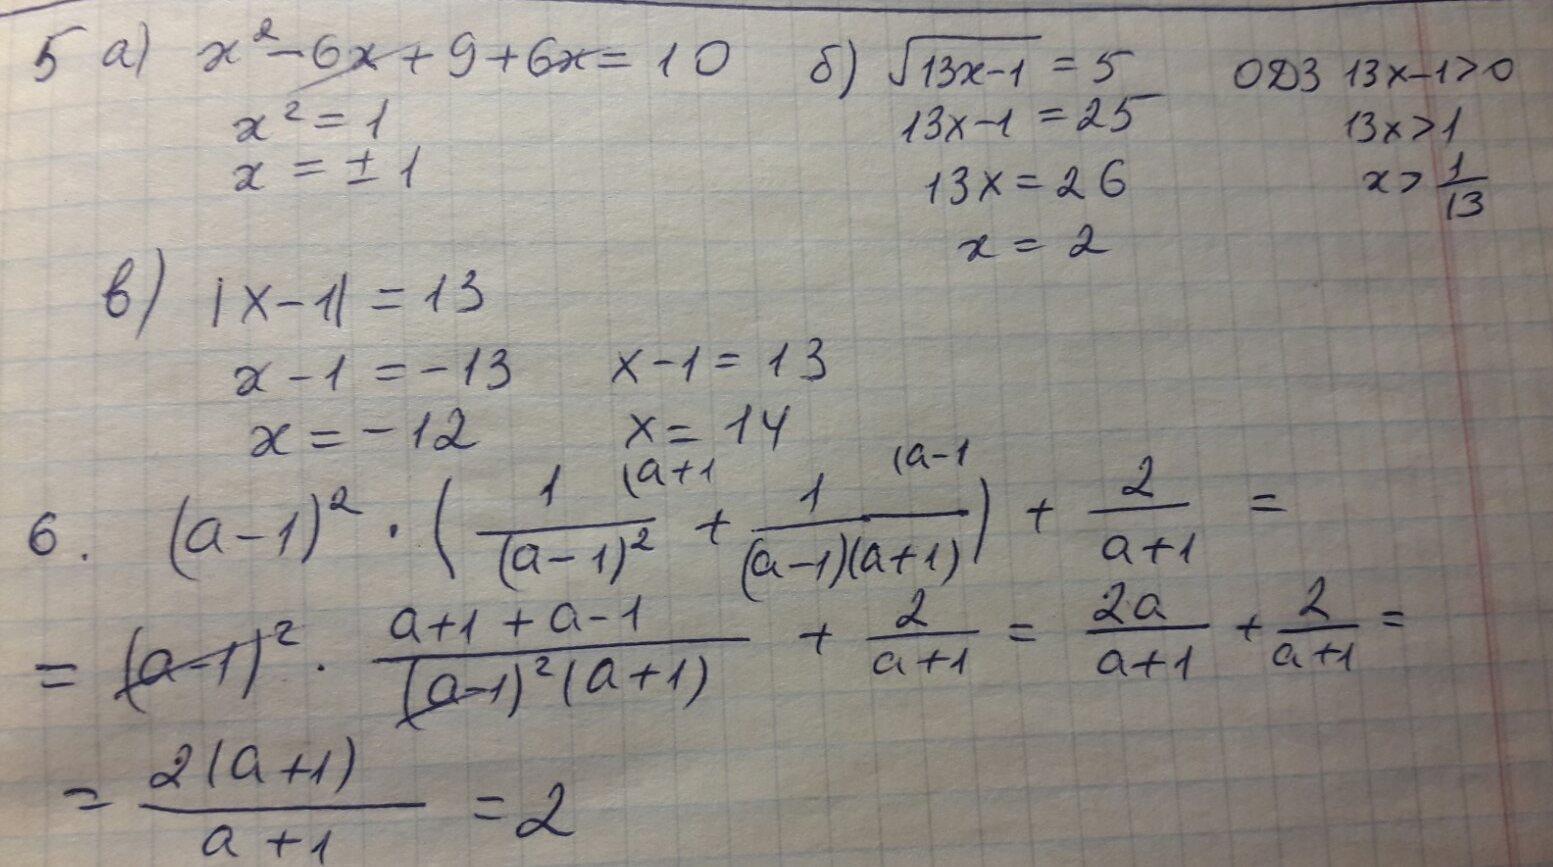 5 а) x² - 6x + 9 + 6x = 10
x² = 1
x = ± 1
б) √(13x-1) = 5
13x-1 = 25
13x = 26
x = 2
ОДЗ 13x-1>0
13x>1
x> 1/13
в) |x-1| = 13
x - 1 = -13 x-1 = 13
x = -12 x = 14
6. (a-1)² · ( 1/(a-1)² (a+1 + 1/(a-1)(a+1) (a-1 ) + 2/(a+1) =
= (a-1)² · (a+1+a-1)/((a-1)²(a+1)) + 2/(a+1) = 2a/(a+1) + 2/(a+1) =
= 2(a+1)/(a+1) = 2